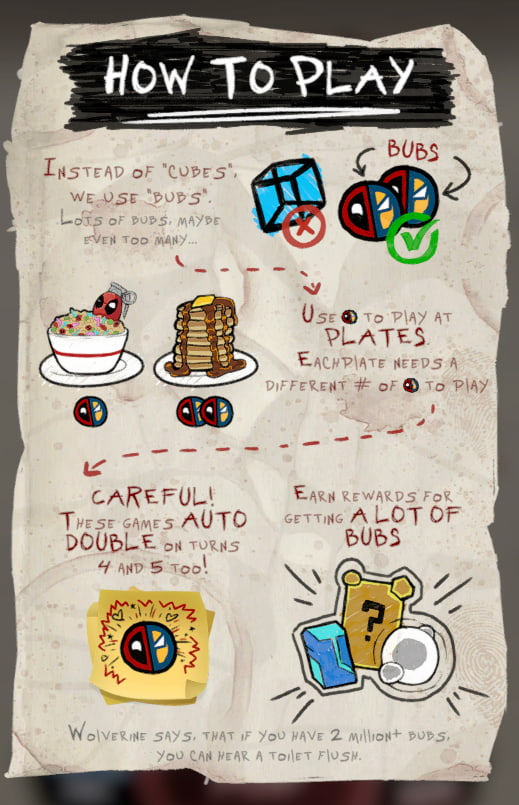 HOW TO PLAY
INSTEAD OF "CUBES",
WE USE "BUBS".
LOTS OF BUBS, MAYBE
EVEN TOO MANY...
BUBS
USE TO PLAY AT
PLATES.
EACH PLATE NEEDS A
DIFFERENT # OF TO PLAY
CAREFUL!
THESE GAMES AUTO
DOUBLE ON TURNS
4 AND 5 TOO!
EARN REWARDS FOR
GETTING A LOT OF
BUBS
?
WOLVERINE SAYS, THAT IF YOU HAVE 2 MILLION+ BUBS,
YOU CAN HEAR A TOILET FLUSH.